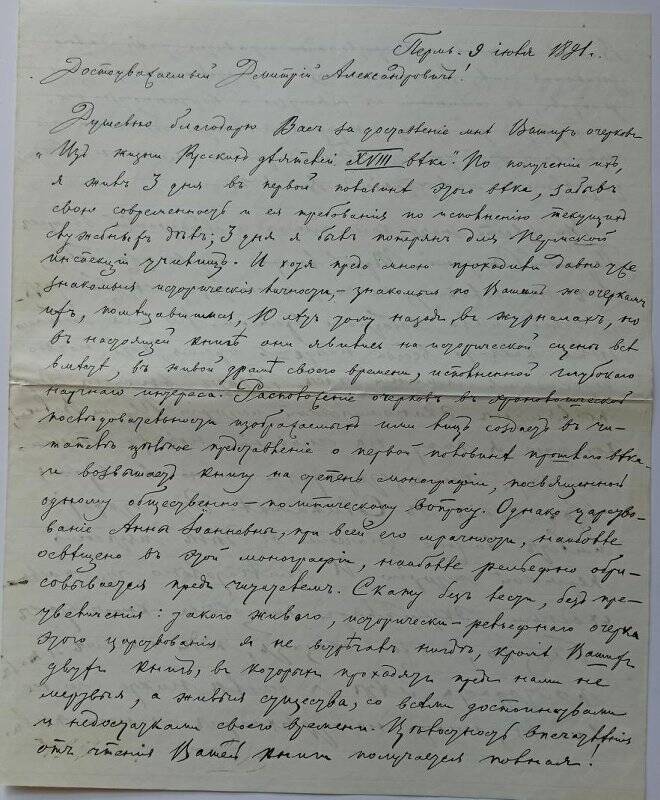 Пермь. 9 іюня 1891 г.
Достоуважаемый Дмитрій Александровичъ!
Душевно благодарю Васъ за доставленіе мнѣ Вашихъ очерковъ
„Изъ жизни Русскихъ дѣятелей XVIII вѣка". По полученіи ихъ,
я жилъ 3 дня въ первой половинѣ этого вѣка, забывъ
свою современность и ея требованія по исполненію текущихъ
служебныхъ дѣлъ; 3 дня я былъ потерянъ для Пермской
инспекціи училищъ. И хотя предо мною проходили давно уже
знакомыя историческія личности, – знакомыя по Вашимъ же очеркамъ
ихъ, помѣщавшимся, 10 лѣтъ тому назадъ, въ журналахъ, но
въ настоящей книгѣ они явились на исторической сценѣ всѣ
вмѣстѣ, въ живой драмѣ своего времени, исполненной глубокаго
научнаго интереса. Расположеніе очерковъ въ хронологической
послѣдовательности изображаемыхъ ими лицъ создаетъ въ чи-
тателѣ цѣльное представленіе о первой половинѣ прошлаго вѣка
и возвышаетъ книгу на степень монографіи, посвященной
одному общественно-политическому вопросу. Однако царство-
ваніе Анны Іоанновны, при всей его мрачности, наиболѣе
освѣщено въ этой монографіи, наиболѣе рельефно обри-
совывается предъ читателемъ. Скажу безъ лести, безъ пре-
увеличенія: такого живаго, исторически-рельефнаго очерка
этого царствованія я не встрѣчалъ нигдѣ, кромѣ Вашихъ
двухъ книгъ, въ которыхъ проходятъ предъ нами не
мертвыя, а живыя существа, со всѣми достоинствами
и недостатками своего времени. Цѣлостность впечатлѣнія
отъ чтенія Вашей книги получается полная!